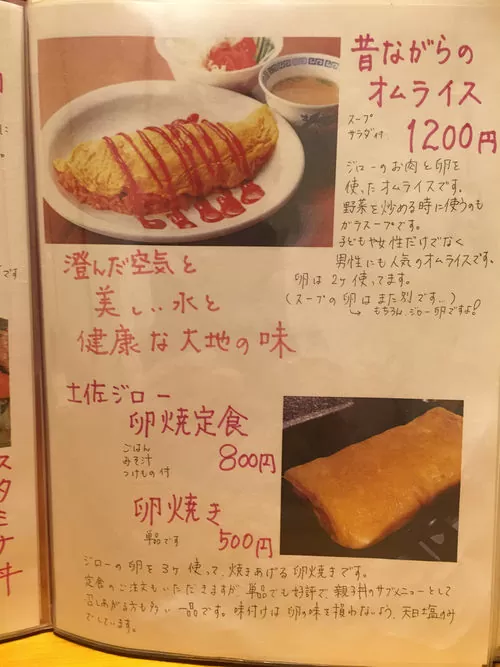 昔ながらの
オムライス
スープ
サラダ付
1200円
ジローのお肉と卵を
使ったオムライスです。
野菜を炒める時に使うのも
ガラスープです。
子どもや女性だけでなく
男性にも人気のオムライスです。
卵は2ヶ使ってます。
(スープの卵はまた別です…)
→もちろん、ジロー卵ですよ!
澄んだ空気と
美しい水と
健康な大地の味
土佐ジロー
卵焼定食
ごはん
みそ汁
つけもの付
800円
卵焼き
単品です
500円
ジローの卵を3ヶ使って、焼きあげる卵焼きです。
定食のご注文もいただきますが、単品でも好評で、親子丼のサブメニューとして
召しあがる方も多い一品です。味付けは卵の味を損わないよう、天日塩のみ
でしています。
です
スタミナ丼